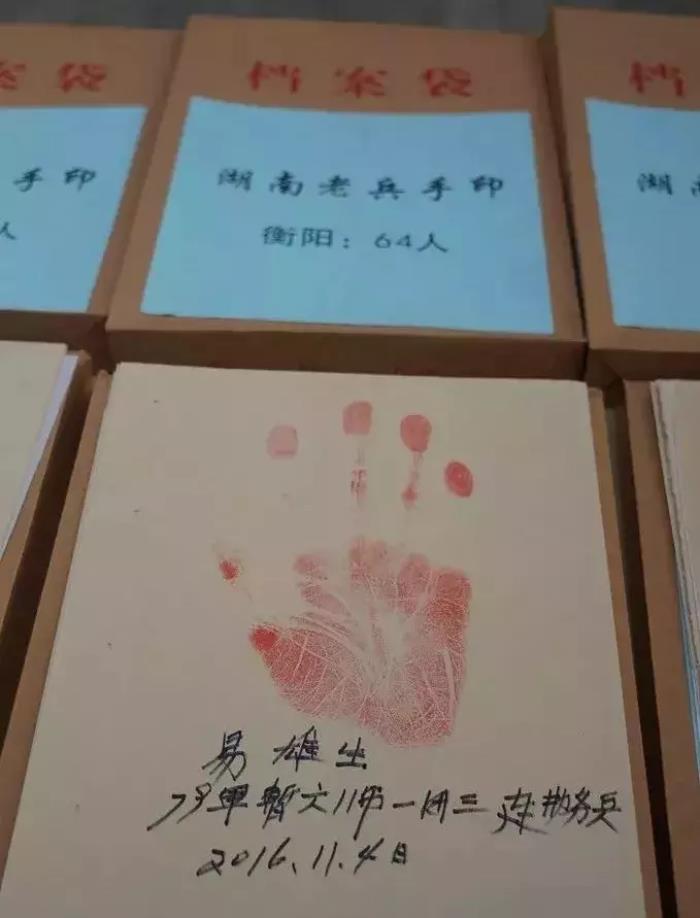 案袋
手印
人
档案袋
湖南老兵手印
衡阳：64人
档
湖
易雄生
79軍暫六师一团三连勤务兵
2016.11.4日